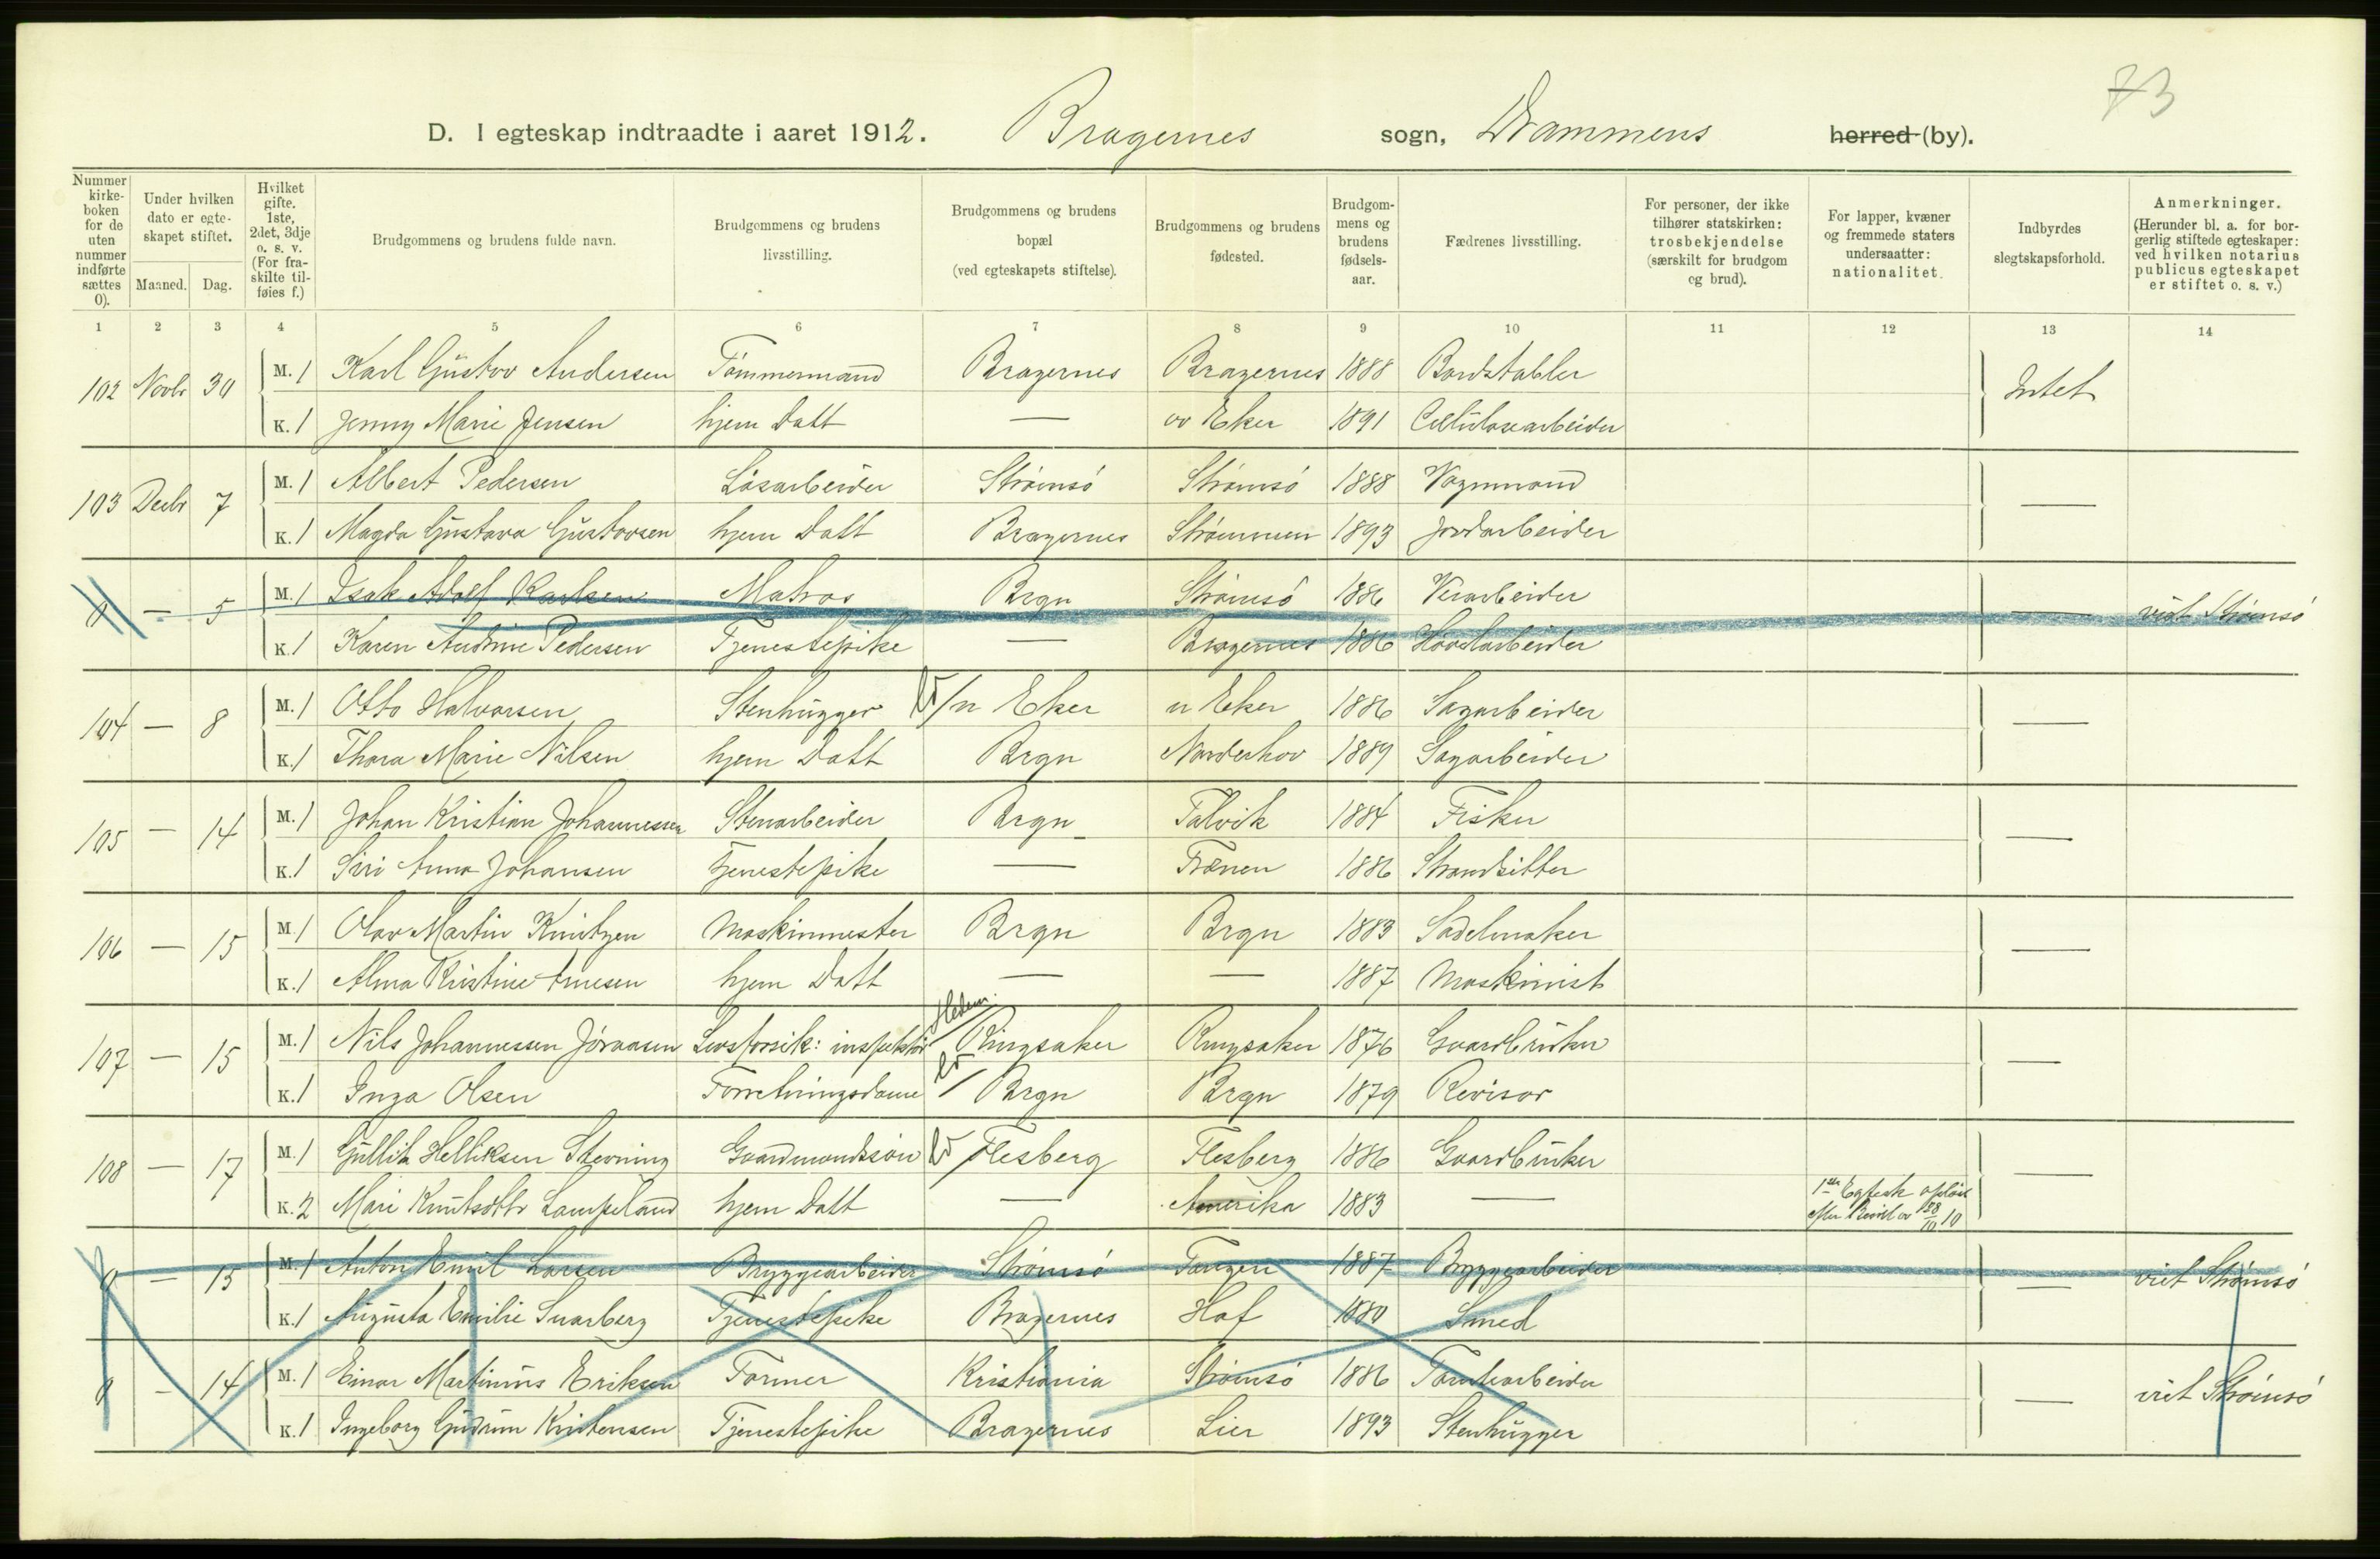 73
D. I egteskap indtraadte i aaret 1912. Bragernes sogn, Drammens herred (by).
Nummer kirkeboken for de uten nummer indførte sættes 0).
Under hvilken dato er egteskapet stiftet.
Maaned. Dag.
Hvilket gifte. 1ste, 2det, 3dje o. s. v. (For fraskilte tilføies f.)
Brudgommens og brudens fulde navn.
Brudgommens og brudens livsstilling.
Brudgommens og brudens bopæl (ved egteskapets stiftelse).
Brudgommens og brudens fødested.
Brudgommens og brudens fødselsaar.
Fædrenes livsstilling.
For personer, der ikke tilhører statskirken: trosbekjendelse (særskilt for brudgom og brud).
For lapper, kvæner og fremmede staters undersaatter: nationalitet.
Indbyrdes slegtskapsforhold.
Anmerkninger. (Herunder bl. a. for borgerlig stiftede egteskaper: ved hvilken notarius publicus egteskapet er stiftet o. s. v.)
1 2 3 4 5 6 7 8 9 10 11 12 13 14
102 Novbr 30 M. 1 Karl Gustav Andersen Tömmermand Bragernes Bragernes 1888 Bordstabler Intet
K. 1 Jenny Marie Jensen hjem Datt — öv Eker 1891 Cellulosearbeider
103 Decbr 7 M. 1 Albert Pedersen Løsarbeider Strømsö Strømsö 1888 Vognmand —
K. 1 Magda Gustava Gustavsen hjem Datt Bragernes Strømmen 1893 Jordarbeider
0 — 5 M. 1 Isak Adolf Karlsen Matros Brgn Strømsö 1886 Verarbeider — viet Strømsö
K. 1 Karen Andrine Pedersen Tjenestepike — Bragernes 1886 Høvlarbeider
104 — 8 M. 1 Otto Halvorsen Stenhugger n Eker n Eker 1886 Sagarbeider —
K. 1 Thora Marie Nilsen hjem Datt Brgn Norderhov 1889 Sagarbeider
105 — 14 M. 1 Johan Kristian Johannessen Stenarbeider Brgn Talvik 1884 Fisker —
K. 1 Siri Anna Johansen Tjenestepike — Trænen 1886 Strandsitter
106 — 15 M. 1 Olav Martin Knutzen Maskinmester Brgn Brgn 1883 Sadelmaker —
K. 1 Alma Kristine Arnesen hjem Datt — — 1887 Maskinist
Hedem.
107 — 15 M. 1 Nils Johannessen Jöraasen Livsforsik: inspektör Ringsaker Ringsaker 1876 Gaardbruker —
K. 1 Inga Olsen Forretningsdame Brgn Brgn 1879 Revisor
108 — 17 M. 1 Gullik Helliksen Stevning Gaardmandssön Flesberg Flesberg 1886 Gaardbruker —
K. 2 Mari Knutsdtr Lampeland hjem Datt — Amerika 1883 — 1ste Egtesk opløst
efter Bevill av 28/10 10
0 — 15 M. 1 Anton Emil Larsen Bryggearbeider Strømsö Tangen 1887 Bryggearbeider — viet Strømsö
K. 1 Augusta Emilie Snarberg Tjenestepike Bragernes Hof 1880 Smed
0 - 14 M. 1 Einar Martinius Eriksen Former Kristiania Strømsö 1886 Tomtearbeider — viet Strømsö
K. 1 Ingeborg Gudrun Kristensen Tjenestepike Bragernes Lier 1893 Stenhugger